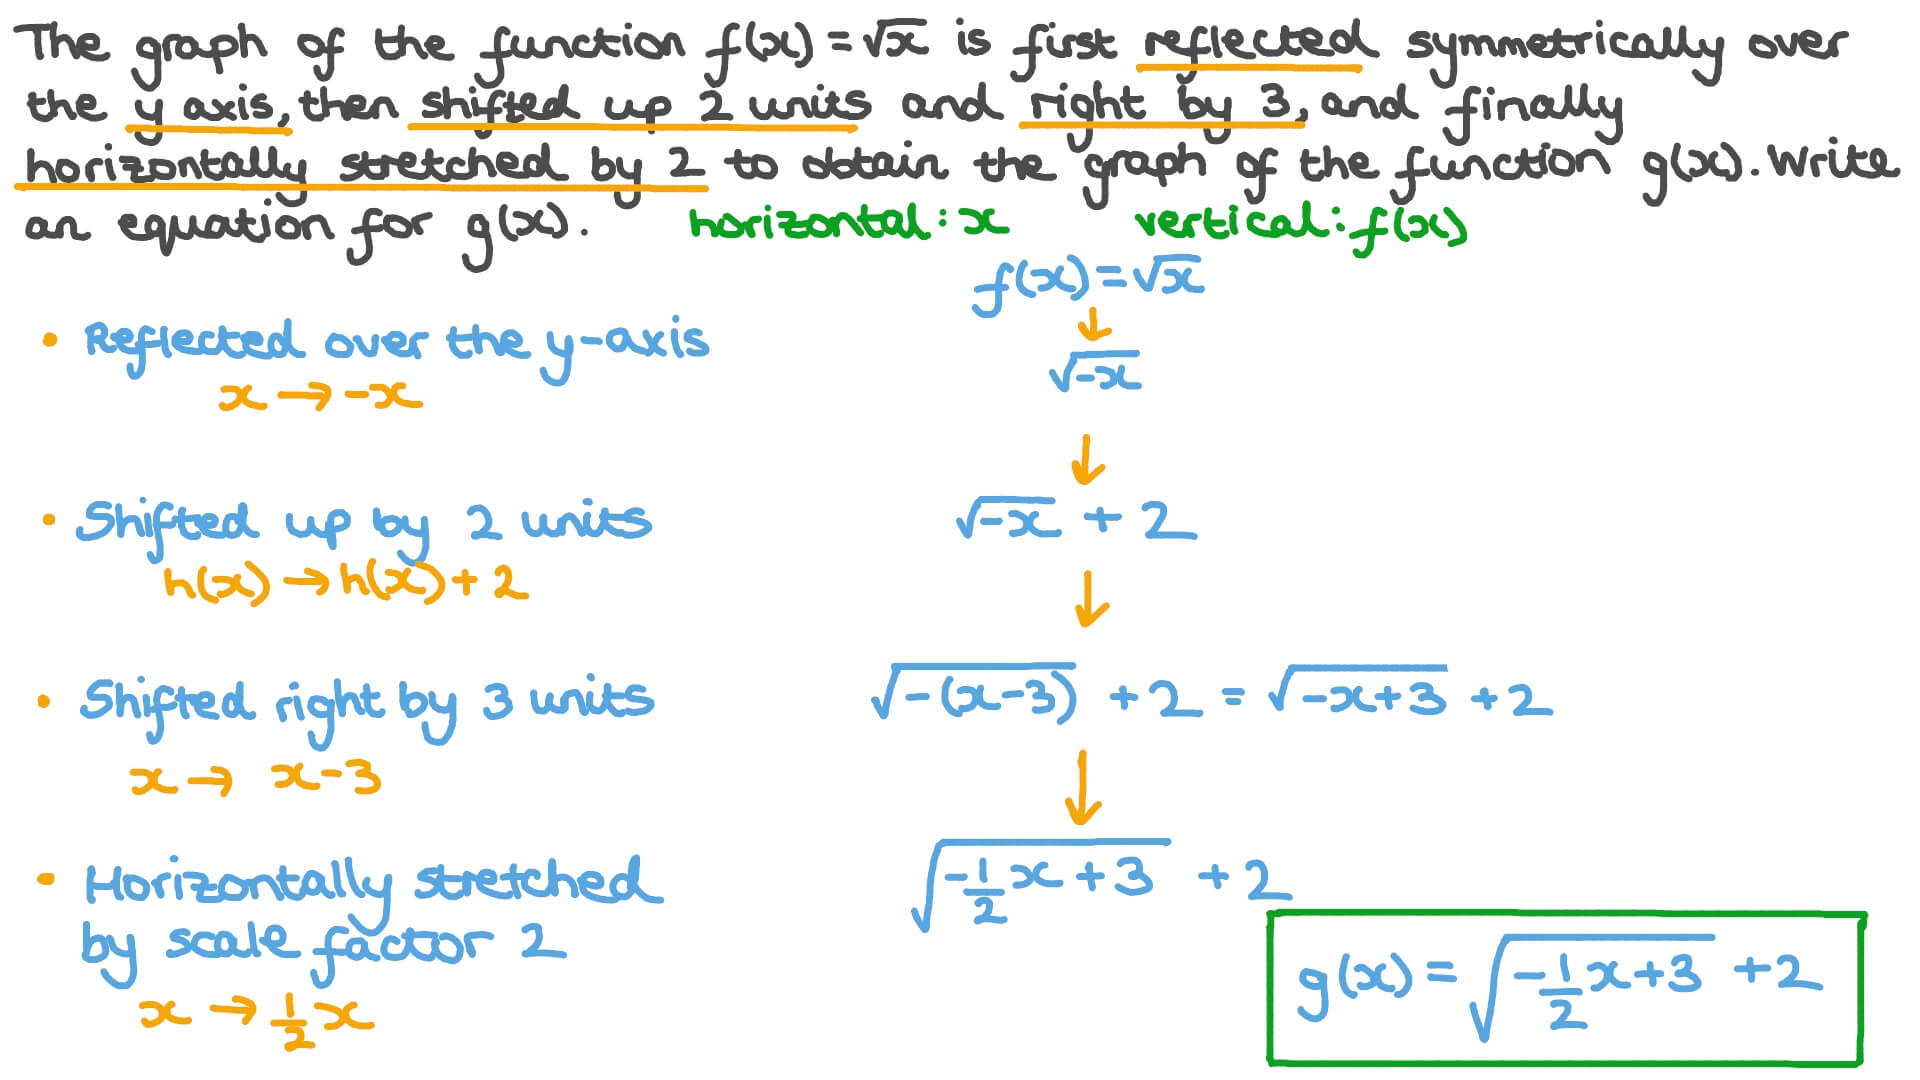 The graph of the function f(x) = √x is first reflected symmetrically over
the y axis, then shifted up 2 units and right by 3, and finally
horizontally stretched by 2 to obtain the graph of the function g(x). Write
an equation for g(x).
horizontal: x
vertical: f(x)
f(x) = √x
• Reflected over the y-axis
x → -x
↓
√-x
↓
• Shifted up by 2 units
h(x) → h(x) + 2
√-x + 2
↓
• Shifted right by 3 units
x → x-3
√-(x-3) + 2 = √-x+3 + 2
↓
• Horizontally stretched
by scale factor 2
x → 1/2 x
√-1/2 x + 3 + 2
g(x) = √-1/2 x+3 + 2